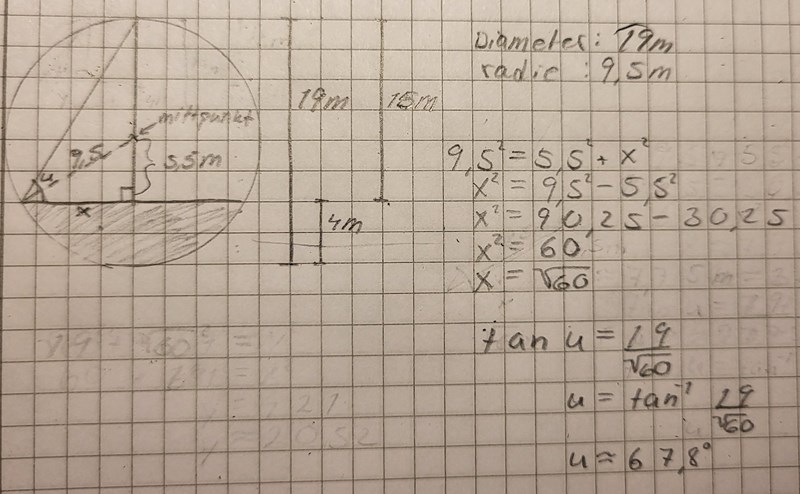 mittpunkt
9,5
u
5,5m
x
19m
15m
4m
Diameter: 19m
radie : 9,5m
9,5² = 5,5² + x²
x² = 9,5² - 5,5²
x² = 90,25 - 30,25
x² = 60
x = √60
tan u = 19/√60
u = tan⁻¹ 19/√60
u ≈ 67,8°